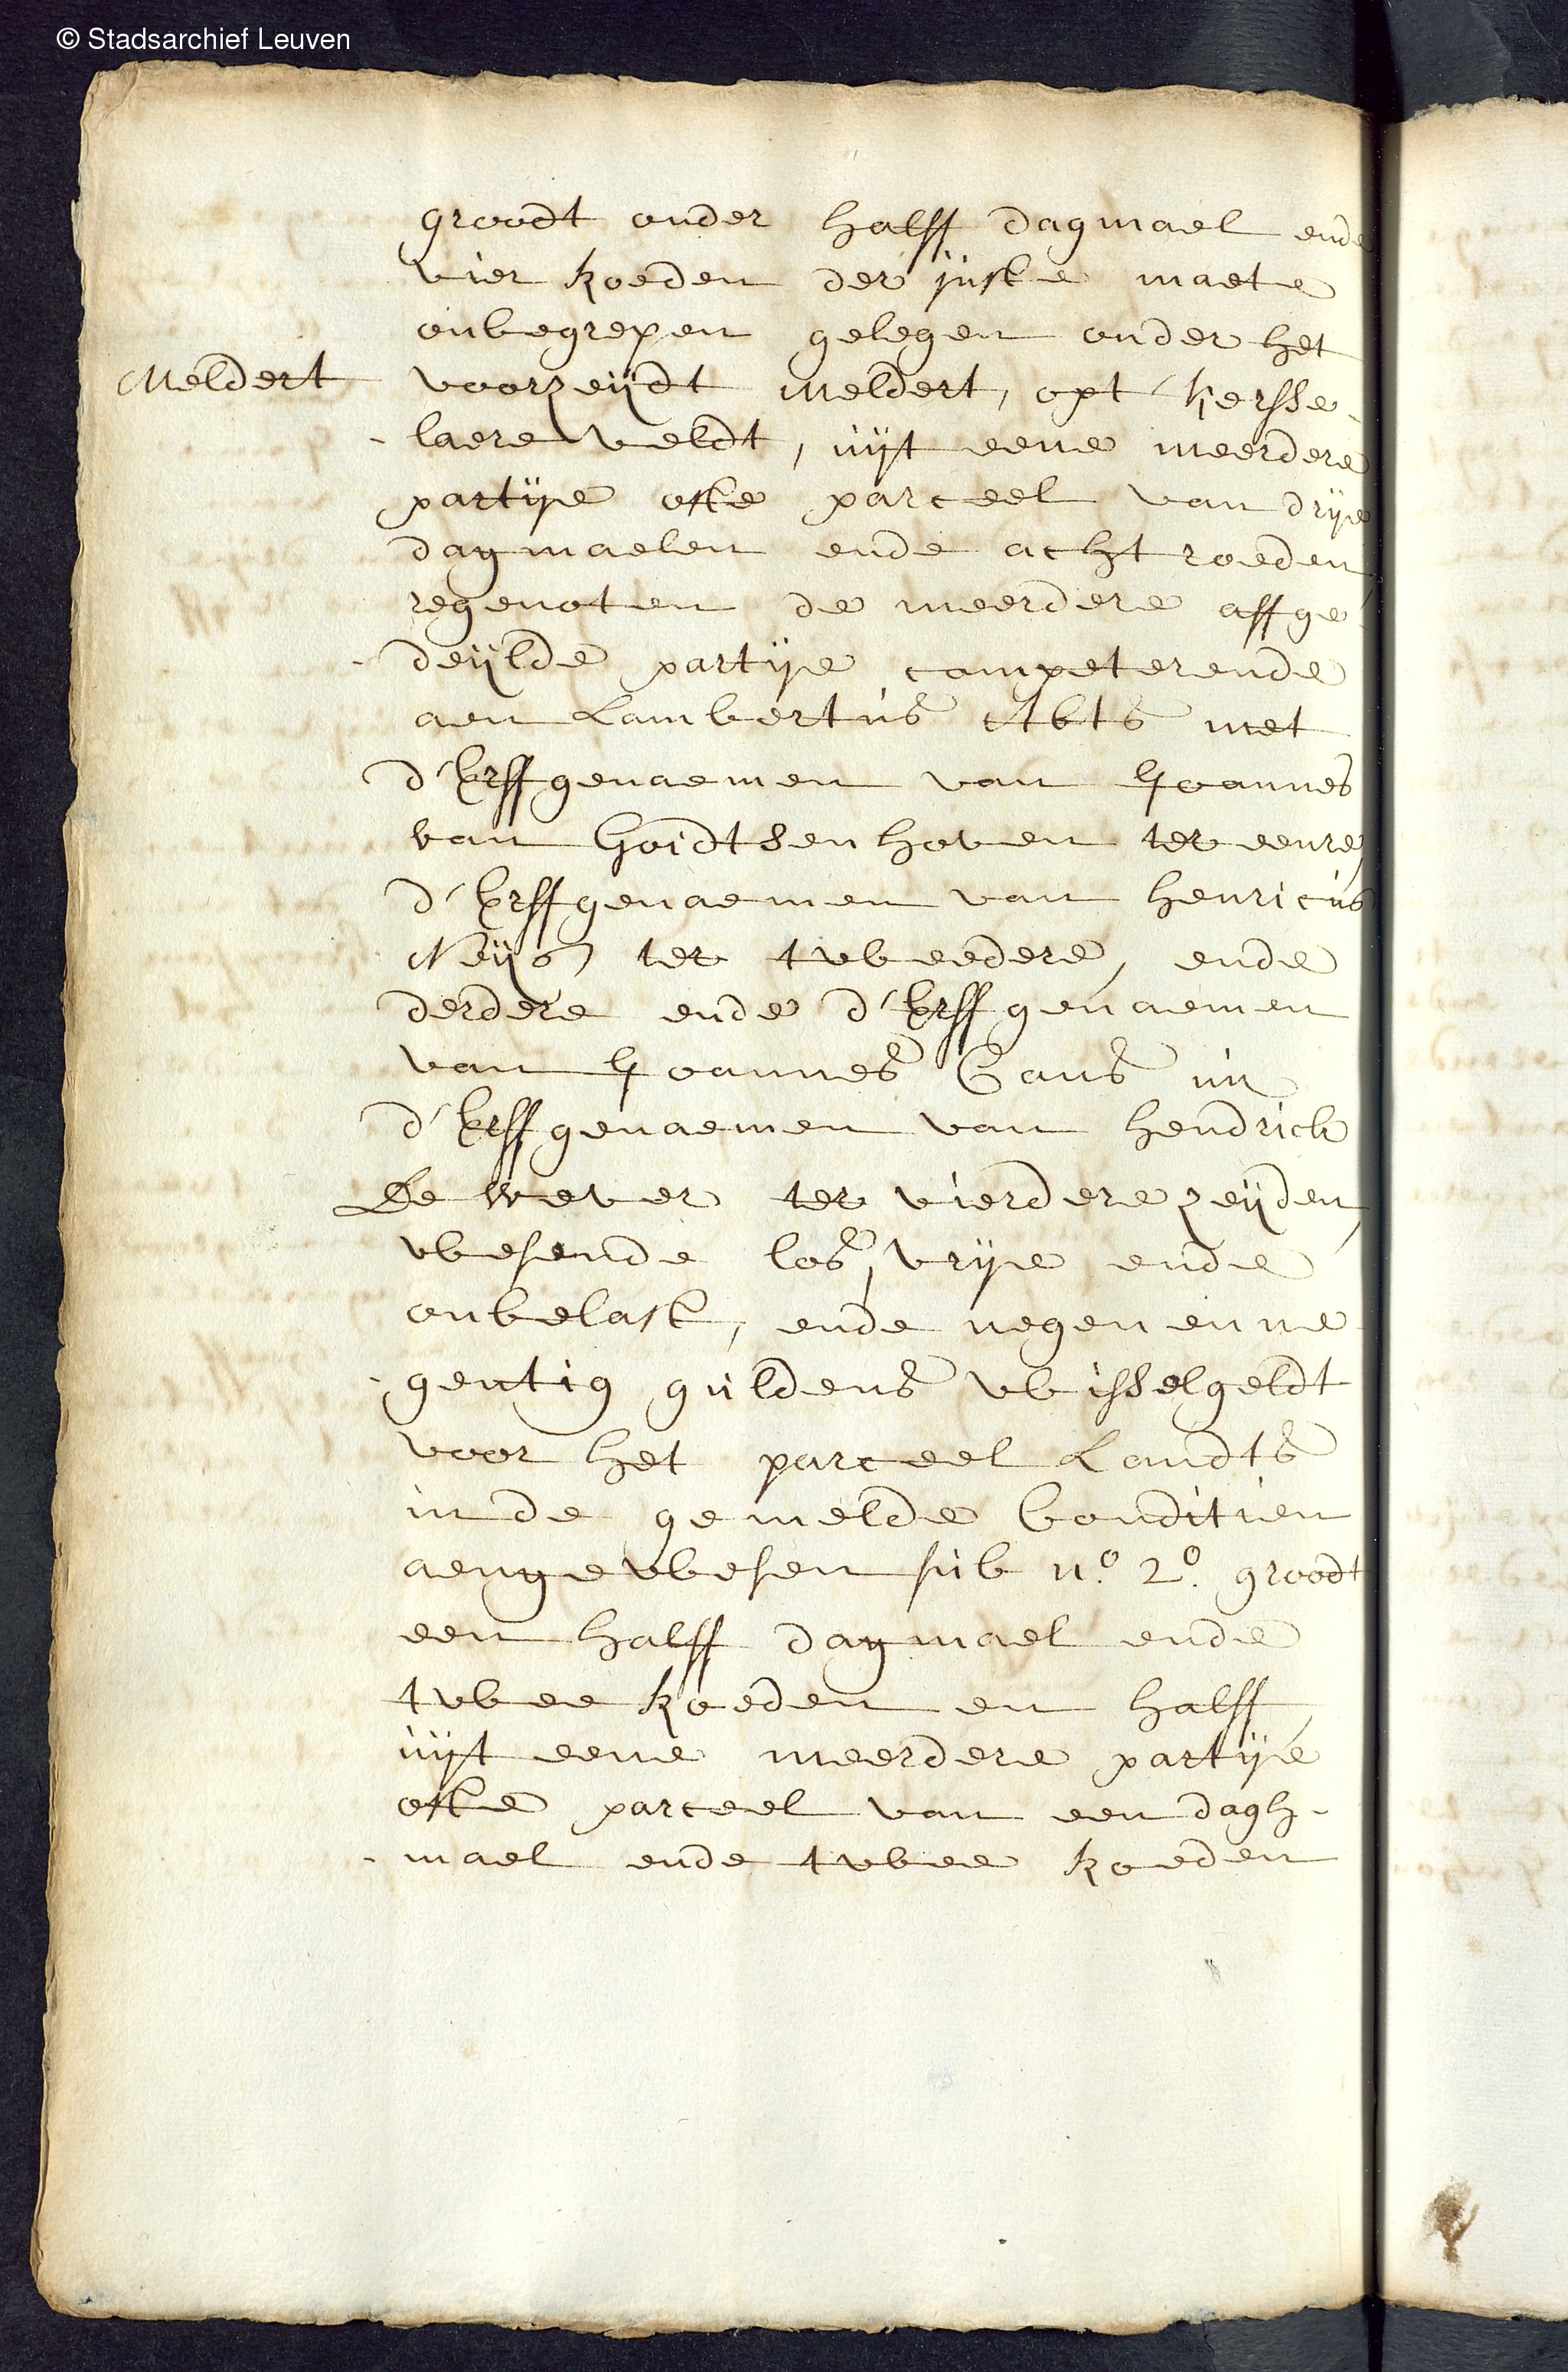 © Stadsarchief Leuven
groodt onder halff dagmael ende
vier Roeden der juste maete
onbegrepen gelegen onder het
Meldert
voorzeijdt Meldert, opt kersse-
-laere veldt, uijt eene meerdere
partije ofte parceel van drije
dagmaelen ende acht roeden
regenoten de meerdere affge-
-deijlde partije competerende
aen Lambertus Abts met
d'Erffgenaemen van Joannes
van Goidtsenhoven ter eenre,
d'Erffgenaemen van henricus
Neijs ter tweedere, ende
derdere ende d'Erffgenaemen
van Joannes Cans nu
d'Erffgenaemen van hendrick
De wever ter vierdere zeijden,
wesende los, vrije ende
onbelast, ende negen en ne
-gentig guldens wisselgeldt
voor het parceel Landts
in de gemelde Conditien
aengewesen sub n.º 2.º groodt
een halff dagmael ende
twee Roeden en halff,
uijt eene meerdere partije
ofte parceel van een dagh-
-mael ende twee Roeden